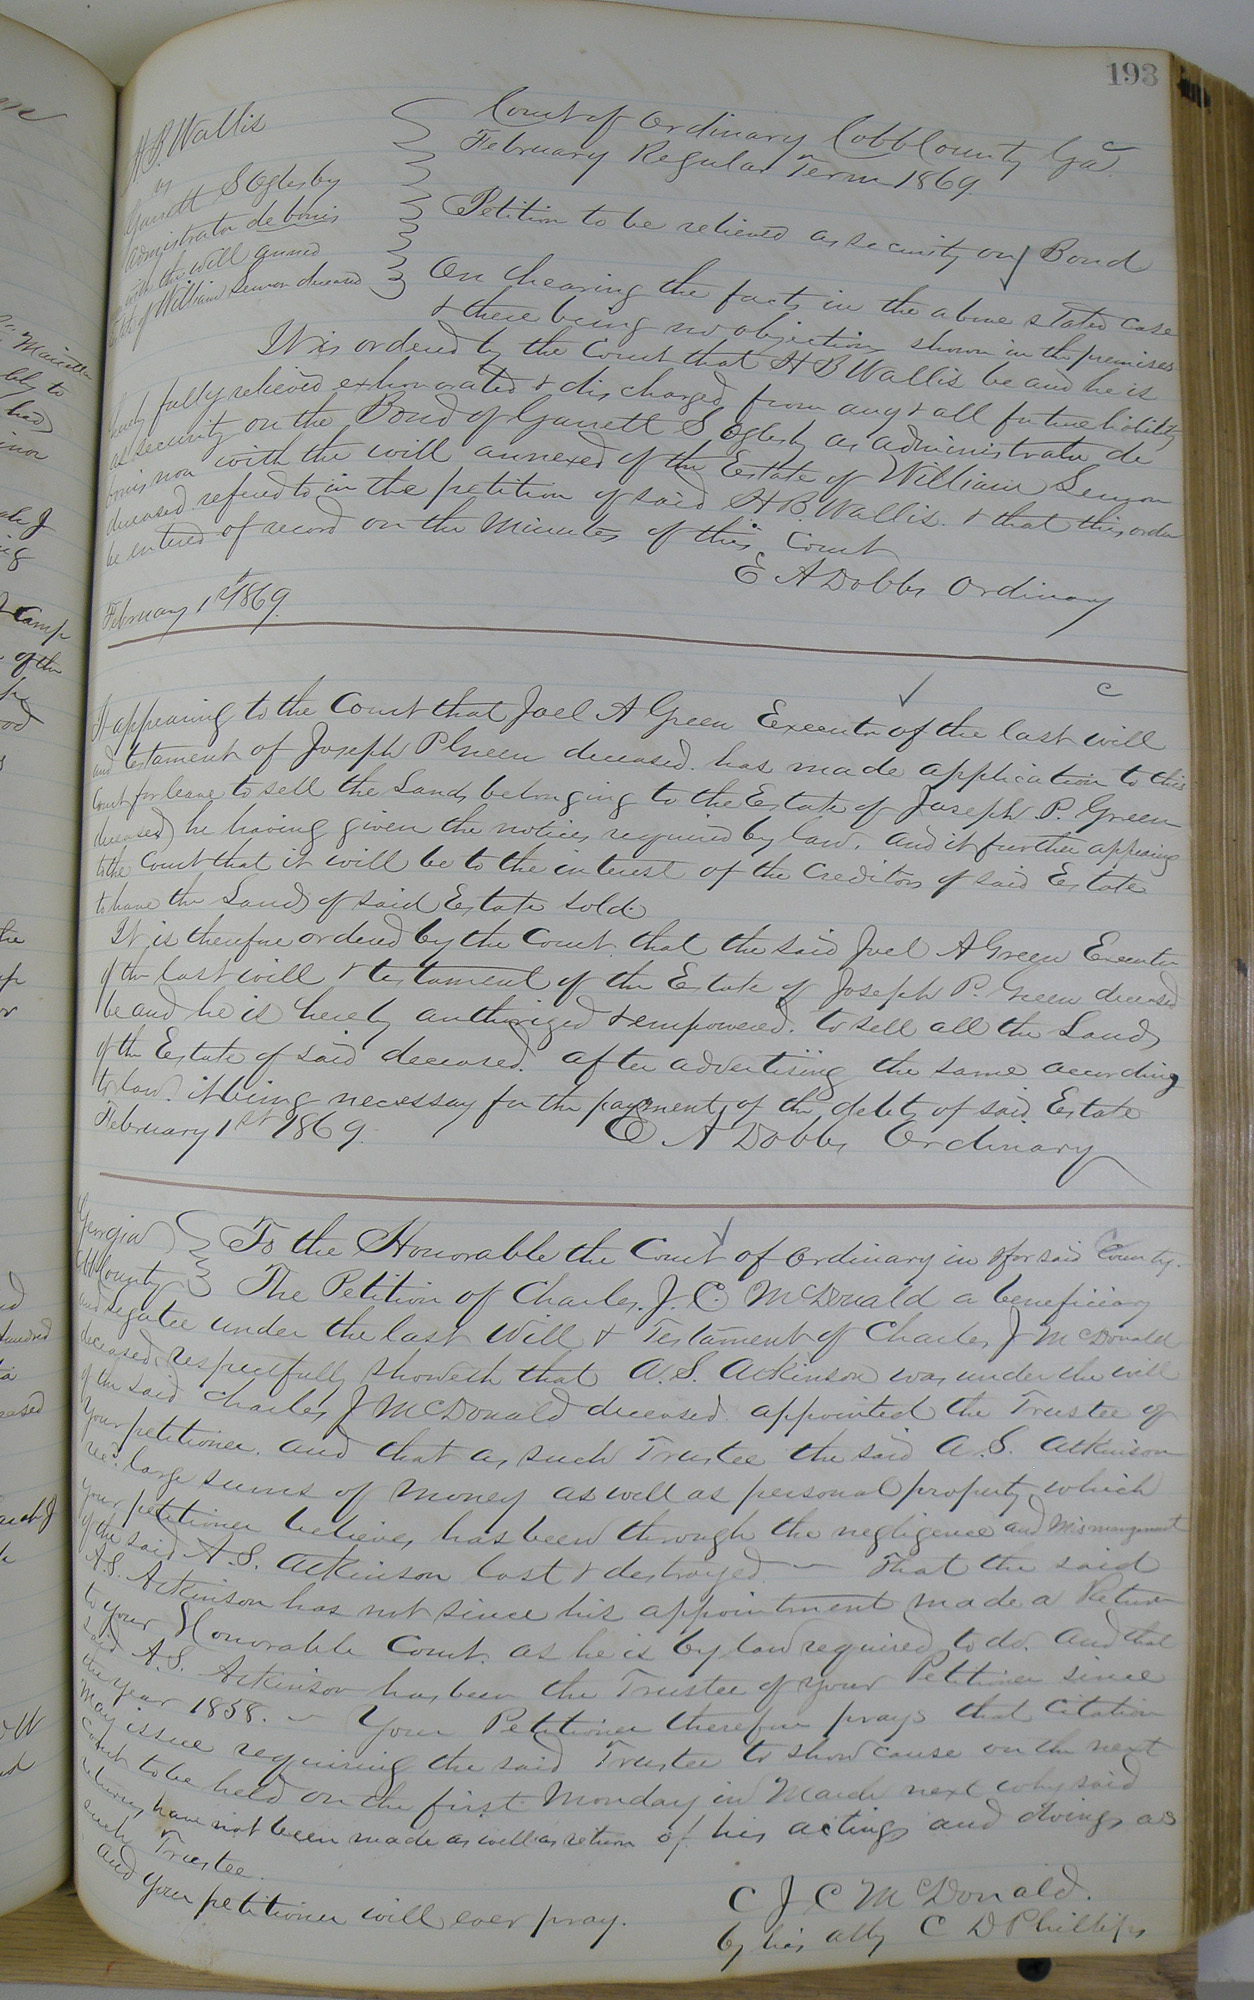 193
H. B. Wallis
vs
Garrett S Oglesby
Admistrator de bonis
with the will annexed
Est. of William Lemon deceased
Court of Ordinary Cobb County Ga.
February Regular Term 1869
Petition to be relieved as security on Bond
On hearing the facts in the above stated case
& there being no objection shown in the premises
It is ordered by the Court that H B Wallis be and he is
hereby fully relieved exhonorated & discharged from any & all future liability
as security on the Bond of Garrett S Oglesby as administrator de
bonis non with the will annexed of the Estate of William Lemon
deceased refered to in the petition of said H. B. Wallis. & that this order
be entered of record on the Minutes of this Court
E A Dobbs Ordinary
February 1st 1869.
It appearing to the Court that Joel A Green Executor of the last will
and testament of Joseph P Green deceased. has made application to this
Court for leave to sell the Lands belonging to the Estate of Joseph P. Green
deceased he having given the notices required by law. and it further appearing
to the Court that it will be to the interest of the Creditors of said Estate
to have the Lands of said Estate sold.
It is therefore ordered by the Court that the said Joel A Green Executor
of the last will & testament of the Estate of Joseph P. Green deceased
be and he is hereby authorized & empowered. to sell all the Lands
of the Estate of said deceased. after advertising the same according
to law. it being necessay for the payment of the debts of said Estate
February 1st 1869.
E A Dobbs Ordinary
Georgia
Cobb County
To the Honorable the Court of Ordinary in & for said County.
The Petition of Charles. J. C. McDonald a beneficiary
and Legatee under the last Will & Testament of Charles J McDonald
deceased, respectfully showeth that A. S. Atkinson was under the will
of the said Charles J McDonald deceased appointed the Trustee of
Your petitioner. and that as such Trustee the said A. S. Atkinson
recd. large sums of money as well as personal property which
your petitioner believes has been through the negligence and Mismanagement
of the said A. S. Atkinson lost & destroyed — That the said
A. S. Atkinson has not since his appointment made a Return
to your Honorable Court. as he is by law required to do. And that
said A. S. Atkinson has been the Trustee of your Petitioner since
the year 1858. — Your Petitioner therefore prays that Citation
may issue requiring the said Trustee to show cause on the next
Court to be held on the first Monday in March next why said
returns have not been made as well as return of his actings and doings as
such Trustee.
And your petitioner will ever pray.
C J C McDonald.
by his atty C D Phillips